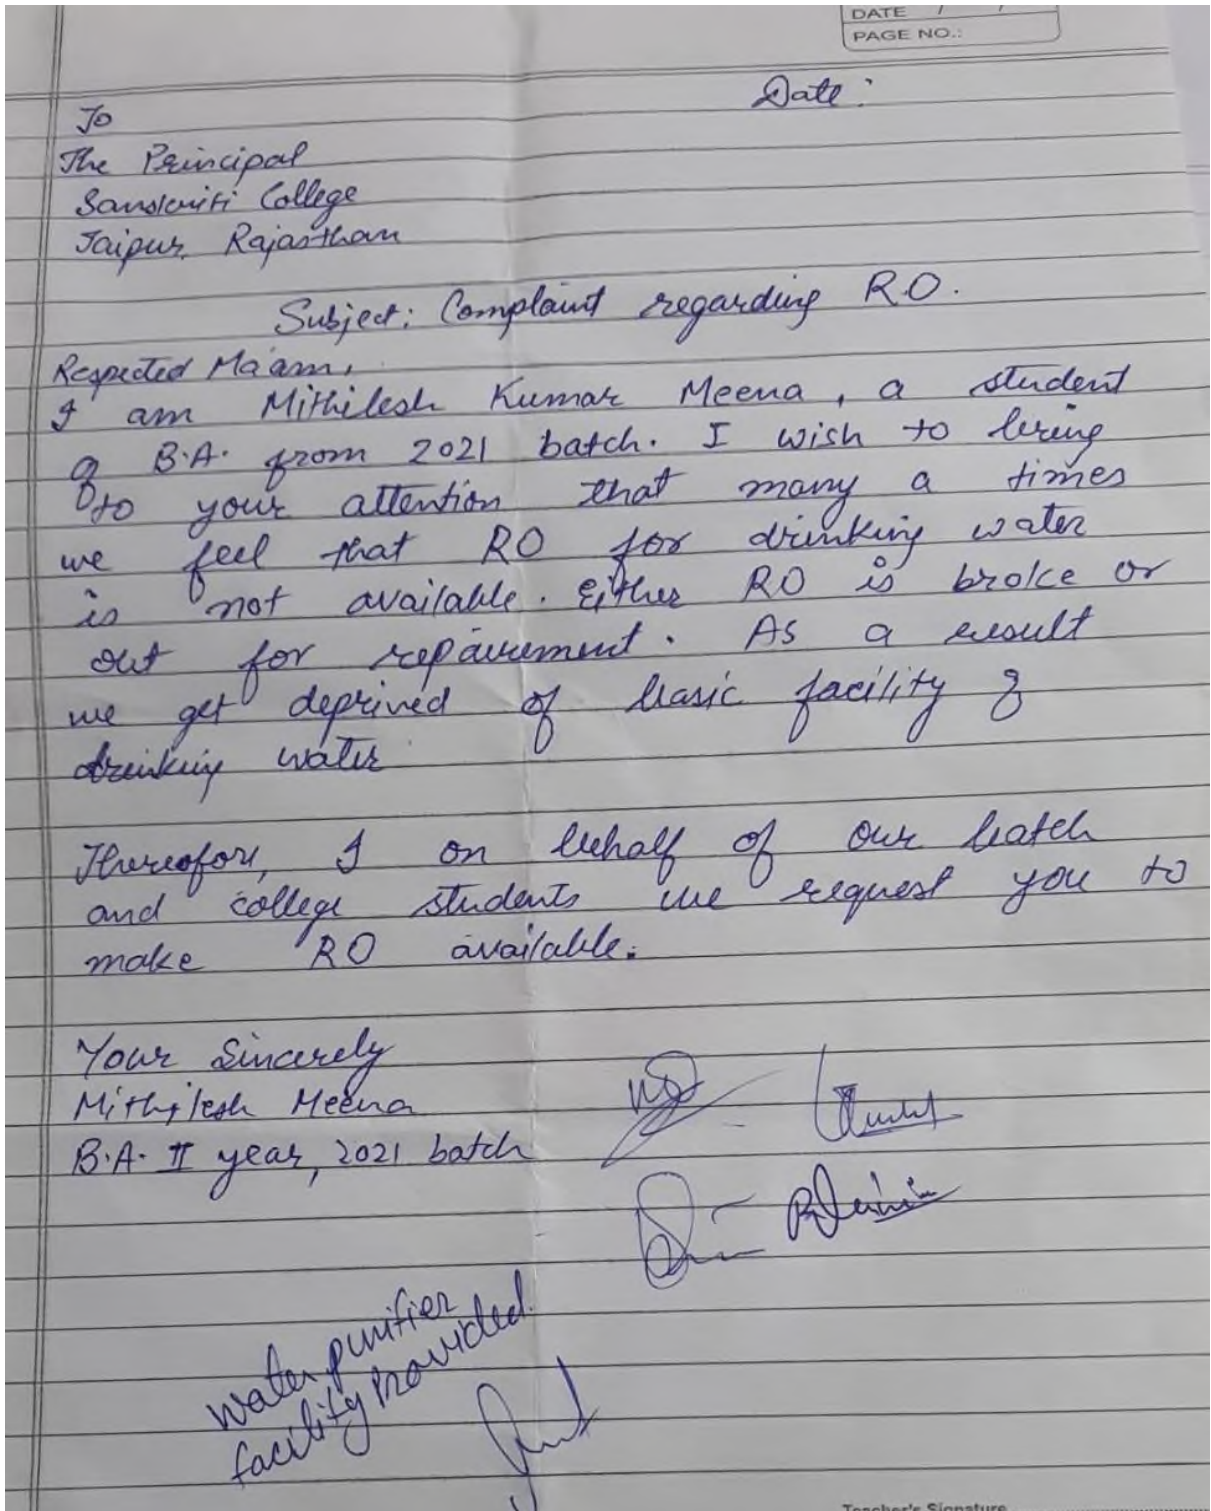 DATE / /
PAGE NO.:
Date :
To
The Principal
Sanskriti College
Jaipur, Rajasthan
Subject: Complaint regarding R.O.
Respected Ma'am,
I am Mithilesh Kumar Meena, a student
of B.A. from 2021 batch. I wish to bring
to your attention that many a times
we feel that RO for drinking water
is not available. Either RO is broke or
out for repairement. As a result
we get deprived of basic facility of
drinking water
Therefore, I on behalf of our batch
and college students we request you to
make RO available.
Your Sincerely
Mithilesh Meena
B.A. II year, 2021 batch
water purifier
facility Provided.
Teacher's Signature